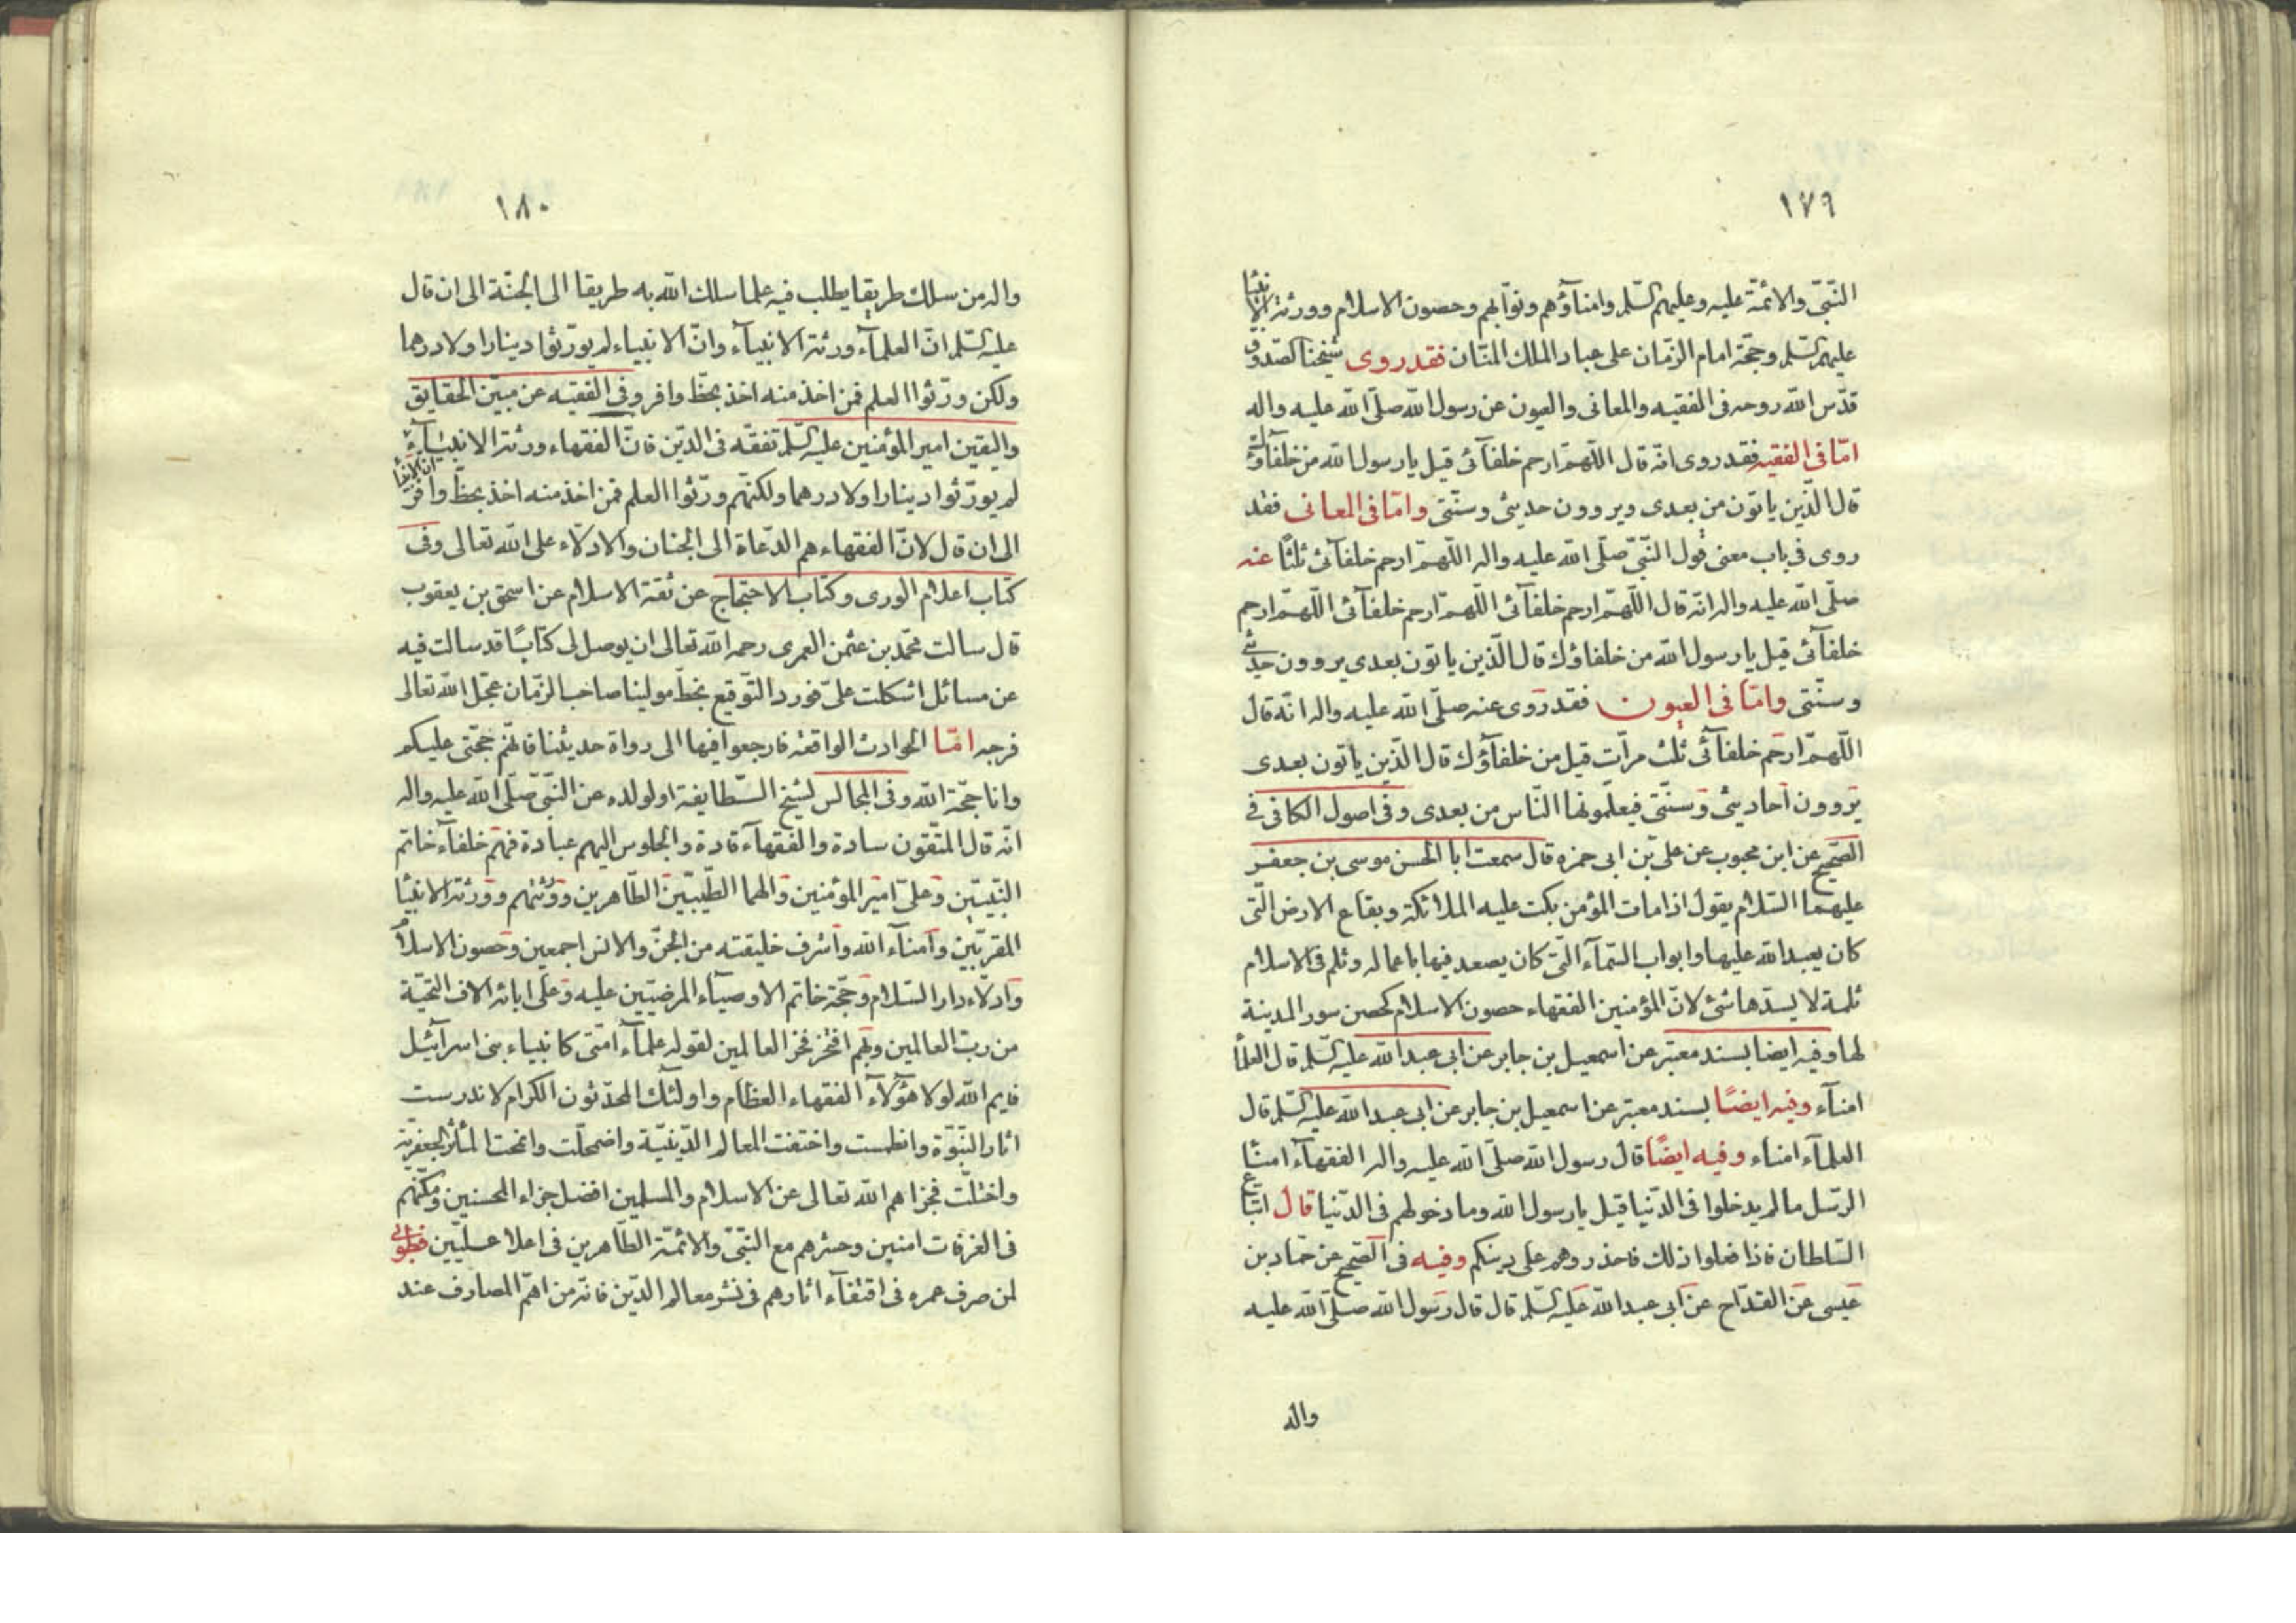 ١٧٩
النّبیّ والائمّة علیه وعلیهم السّلم وامناؤهم ونوّابهم وحصون الاسلام وورثة الانبیا
علیهم السّلم وحجّة امام الزّمان علی عباد الملك المنّان فقد روی شیخنا الصّدوق
قدّس الله روحه فی الفقیه والمعانی والعیون عن رسول الله صلّی الله علیه واله
امّا فی الفقیه فقد روی انّه قال اللّهمّ ارحم خلفآئی قیل یا رسول الله من خلفاؤك
قال الّذین یاتون من بعدی ویروون حدیثی وسنّتی وامّا فی المعانی فقد
روی فی باب معنی قول النّبیّ صلّی الله علیه واله اللّهمّ ارحم خلفآئی ثلثًا عنه
صلّی الله علیه واله انّه قال اللّهمّ ارحم خلفآئی اللّهمّ ارحم خلفآئی اللّهمّ ارحم
خلفآئی قیل یا رسول الله من خلفاؤك قال الّذین یاتون بعدی یروون حدیثی
وسنّتی وامّا فی العیون فقد روی عنه صلّی الله علیه واله انّه قال
اللّهمّ ارحم خلفآئی ثلث مرّات قیل من خلفآؤك قال الّذین یاتون بعدی
یروون احادیثی وسنّتی فیعلّمونها النّاس من بعدی وفی اصول الکافی فی
الصّحیح عن ابن محبوب عن علی بن ابی حمزه قال سمعت ابا الحسن موسی بن جعفر
علیهما السّلام یقول اذا مات المؤمن بکت علیه الملائکة وبقاع الارض الّتی
کان یعبد الله علیها وابواب السّمآء الّتی کان یصعد فیها باعماله وثلم فی الاسلام
ثلمة لا یسدّها شئ لانّ المؤمنین الفقهاء حصون الاسلام کحصن سور المدینة
لها وفیه ایضا بسند معتبر عن اسمعیل بن جابر عن ابی عبد الله علیه السّلم قال العلمآ
امنآء وفیه ایضًا بسند معتبر عن اسمعیل بن جابر عن ابی عبد الله علیه السّلم قال
العلمآء امناء وفیه ایضًا قال رسول الله صلّی الله علیه واله الفقهآء امنا
الرّسل ما لم یدخلوا فی الدّنیا قیل یا رسول الله وما دخولهم فی الدّنیا قال اتباع
السّلطان فاذا فعلوا ذلك فاحذروهم علی دینکم وفیه فی الصّحیح عن حمّاد بن
عیسی عن القدّاح عن ابی عبد الله علیه السّلم قال قال رسول الله صلّی الله علیه
واله
١٨٠
واله من سلك طریقا یطلب فیه علما سلك الله به طریقا الی الجنّة الی ان قال
علیه السّلم انّ العلمآء ورثة الانبیآء وانّ الانبیاء لم یورّثوا دینارا ولا درهما
ولکن ورّثوا العلم فمن اخذ منه اخذ بحظّ وافر وفی الفقیه عن مبیّن الحقایق
والیقین امیر المؤمنین علیه السّلم تفقّه فی الدّین فانّ الفقهاء ورثة الانبیآء
انّ الانبیآ
لم یورّثوا دینارا ولا درهما ولکنّهم ورّثوا العلم فمن اخذ منه اخذ بحظّ وافر
الی ان قال لانّ الفقهاء هم الدّعاة الی الجنان والادلاّء علی الله تعالی وفی
کتاب اعلام الوری وکتاب الاحتجاج عن ثقة الاسلام عن اسحق بن یعقوب
قال سالت محمّد بن عثمن العمری رحمه الله تعالی ان یوصل لی کتابًا قد سالت فیه
عن مسائل اشکلت علیّ فورد التّوقیع بخطّ مولینا صاحب الزّمان عجّل الله تعالی
فرجه امّا الحوادث الواقعه فارجعوا فیها الی رواة حدیثنا فانّهم حجّتی علیکم
وانا حجّة الله وفی المجالس لشیخ الطّایفة او لولده عن النّبیّ صلّی الله علیه واله
انّه قال المتّقون سادة والفقهآء قادة والجلوس الیهم عبادة فهم خلفآء خاتم
النّبیّین وعلیّ امیر المؤمنین والهما الطّیّبین الطّاهرین وورثتهم وورثة الانبیا
المقرّبین وامنآء الله واشرف خلیقته من الجنّ والانس اجمعین وحصون الاسلام
وادلاّء دار السّلام وحجّة خاتم الاوصیآء المرضیّین علیه وعلی ابائه الاف التحیّة
من ربّ العالمین وبهم افتخر فخر العالمین لقوله علمآء امّتی کانبیاء بنی اسرآئیل
فایم الله لولا هؤلآء الفقهاء العظام واولئك المحدّثون الکرام لاندرست
اثار النّبوّة وانطمست واختفت المعالم الدّینیّة واضمحلّت وانمحت المآثر الجعفریّة
واختلّت فجزاهم الله تعالی عن الاسلام والمسلمین افضل جزاء المحسنین ومکّنهم
فی الغرفات امنین وحشرهم مع النّبیّ والائمّة الطّاهرین فی اعلا علّیّین فطوبی
لمن صرف عمره فی اقتفآء اثارهم فی نشر معالم الدّین فانّه من اهمّ المصارف عند